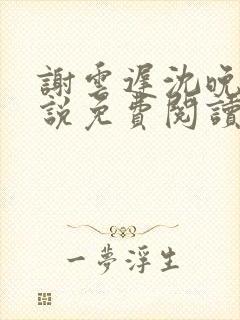 謝雲遲沈晚
說免費閱讀
一夢浮生